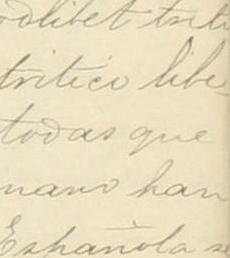 odlibet trit
tritico libe
todas que
mano han
Española se